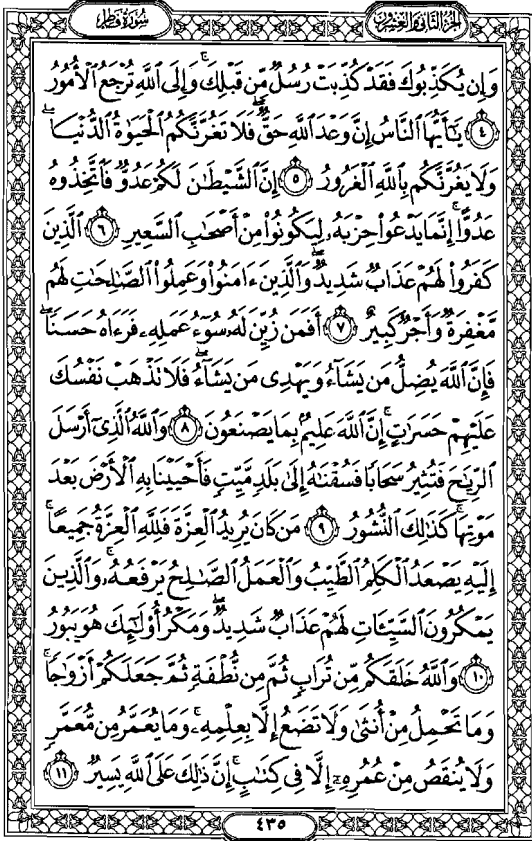 سُورَةُ فَاطِرٍ
الجُزْءُ الثَّانِي وَالعِشْرُونَ
وَإِن يُكَذِّبُوكَ فَقَدْ كُذِّبَتْ رُسُلٌ مِّن قَبْلِكَ ۚ وَإِلَى ٱللَّهِ تُرْجَعُ ٱلْأُمُورُ
﴿٤﴾ يَـٰٓأَيُّهَا ٱلنَّاسُ إِنَّ وَعْدَ ٱللَّهِ حَقٌّ ۖ فَلَا تَغُرَّنَّكُمُ ٱلْحَيَوٰةُ ٱلدُّنْيَا ۖ
وَلَا يَغُرَّنَّكُم بِٱللَّهِ ٱلْغَرُورُ ﴿٥﴾ إِنَّ ٱلشَّيْطَـٰنَ لَكُمْ عَدُوٌّ فَٱتَّخِذُوهُ
عَدُوًّا ۚ إِنَّمَا يَدْعُوا۟ حِزْبَهُۥ لِيَكُونُوا۟ مِنْ أَصْحَـٰبِ ٱلسَّعِيرِ ﴿٦﴾ ٱلَّذِينَ
كَفَرُوا۟ لَهُمْ عَذَابٌ شَدِيدٌ ۖ وَٱلَّذِينَ ءَامَنُوا۟ وَعَمِلُوا۟ ٱلصَّـٰلِحَـٰتِ لَهُم
مَّغْفِرَةٌ وَأَجْرٌ كَبِيرٌ ﴿٧﴾ أَفَمَن زُيِّنَ لَهُۥ سُوٓءُ عَمَلِهِۦ فَرَءَاهُ حَسَنًا ۖ
فَإِنَّ ٱللَّهَ يُضِلُّ مَن يَشَآءُ وَيَهْدِى مَن يَشَآءُ ۖ فَلَا تَذْهَبْ نَفْسُكَ
عَلَيْهِمْ حَسَرَٰتٍ ۚ إِنَّ ٱللَّهَ عَلِيمٌۢ بِمَا يَصْنَعُونَ ﴿٨﴾ وَٱللَّهُ ٱلَّذِىٓ أَرْسَلَ
ٱلرِّيَـٰحَ فَتُثِيرُ سَحَابًا فَسُقْنَـٰهُ إِلَىٰ بَلَدٍ مَّيِّتٍ فَأَحْيَيْنَا بِهِ ٱلْأَرْضَ بَعْدَ
مَوْتِهَا ۚ كَذَٰلِكَ ٱلنُّشُورُ ﴿٩﴾ مَن كَانَ يُرِيدُ ٱلْعِزَّةَ فَلِلَّهِ ٱلْعِزَّةُ جَمِيعًا ۚ
إِلَيْهِ يَصْعَدُ ٱلْكَلِمُ ٱلطَّيِّبُ وَٱلْعَمَلُ ٱلصَّـٰلِحُ يَرْفَعُهُۥ ۚ وَٱلَّذِينَ
يَمْكُرُونَ ٱلسَّيِّـَٔاتِ لَهُمْ عَذَابٌ شَدِيدٌ ۖ وَمَكْرُ أُو۟لَـٰٓئِكَ هُوَ يَبُورُ
﴿١٠﴾ وَٱللَّهُ خَلَقَكُم مِّن تُرَابٍ ثُمَّ مِن نُّطْفَةٍ ثُمَّ جَعَلَكُمْ أَزْوَٰجًا ۚ
وَمَا تَحْمِلُ مِنْ أُنثَىٰ وَلَا تَضَعُ إِلَّا بِعِلْمِهِۦ ۚ وَمَا يُعَمَّرُ مِن مُّعَمَّرٍ
وَلَا يُنقَصُ مِنْ عُمُرِهِۦٓ إِلَّا فِى كِتَـٰبٍ ۚ إِنَّ ذَٰلِكَ عَلَى ٱللَّهِ يَسِيرٌ ﴿١١﴾
٤٣٥